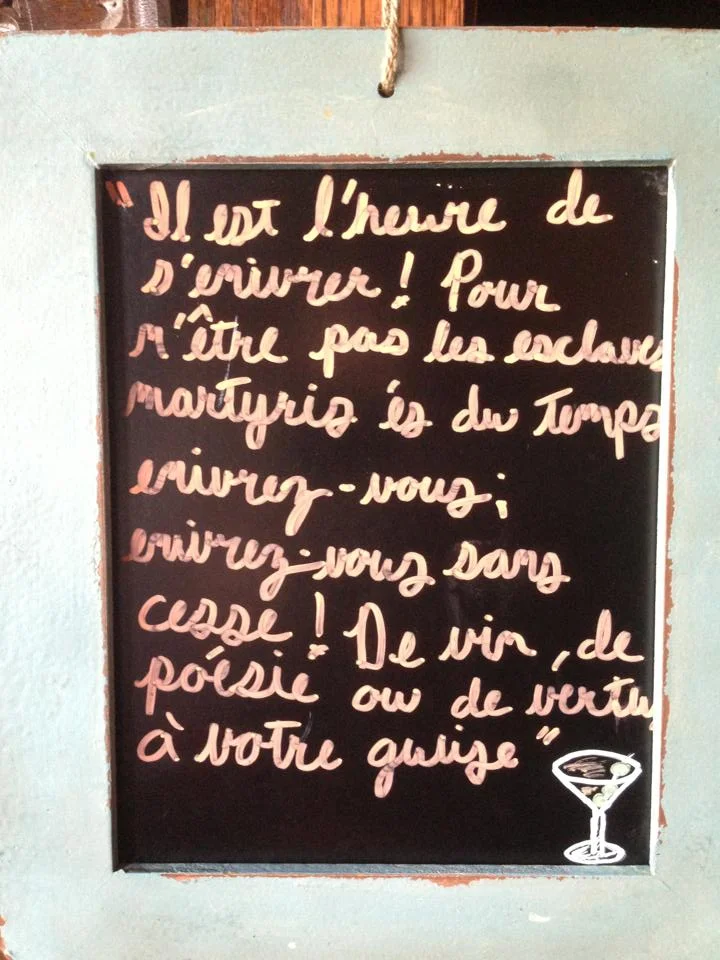 "Il est l'heure de
s'enivrer! Pour
n'être pas les esclaves
martyris és du Temps
enivrez-vous;
enivrez-vous sans
cesse! De vin, de
poésie ou de vertu
à votre guise"